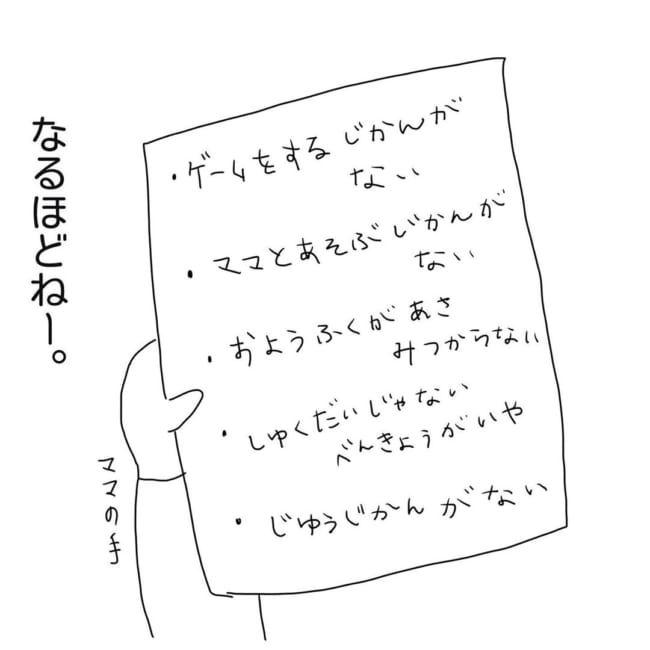 なるほどねー。
・ゲームをするじかんが
ない
・ママとあそぶじかんが
ない
・おようふくが あさ
みつからない
・しゅくだいじゃない
べんきょうがいや
・じゆうじかんがない
ママの手